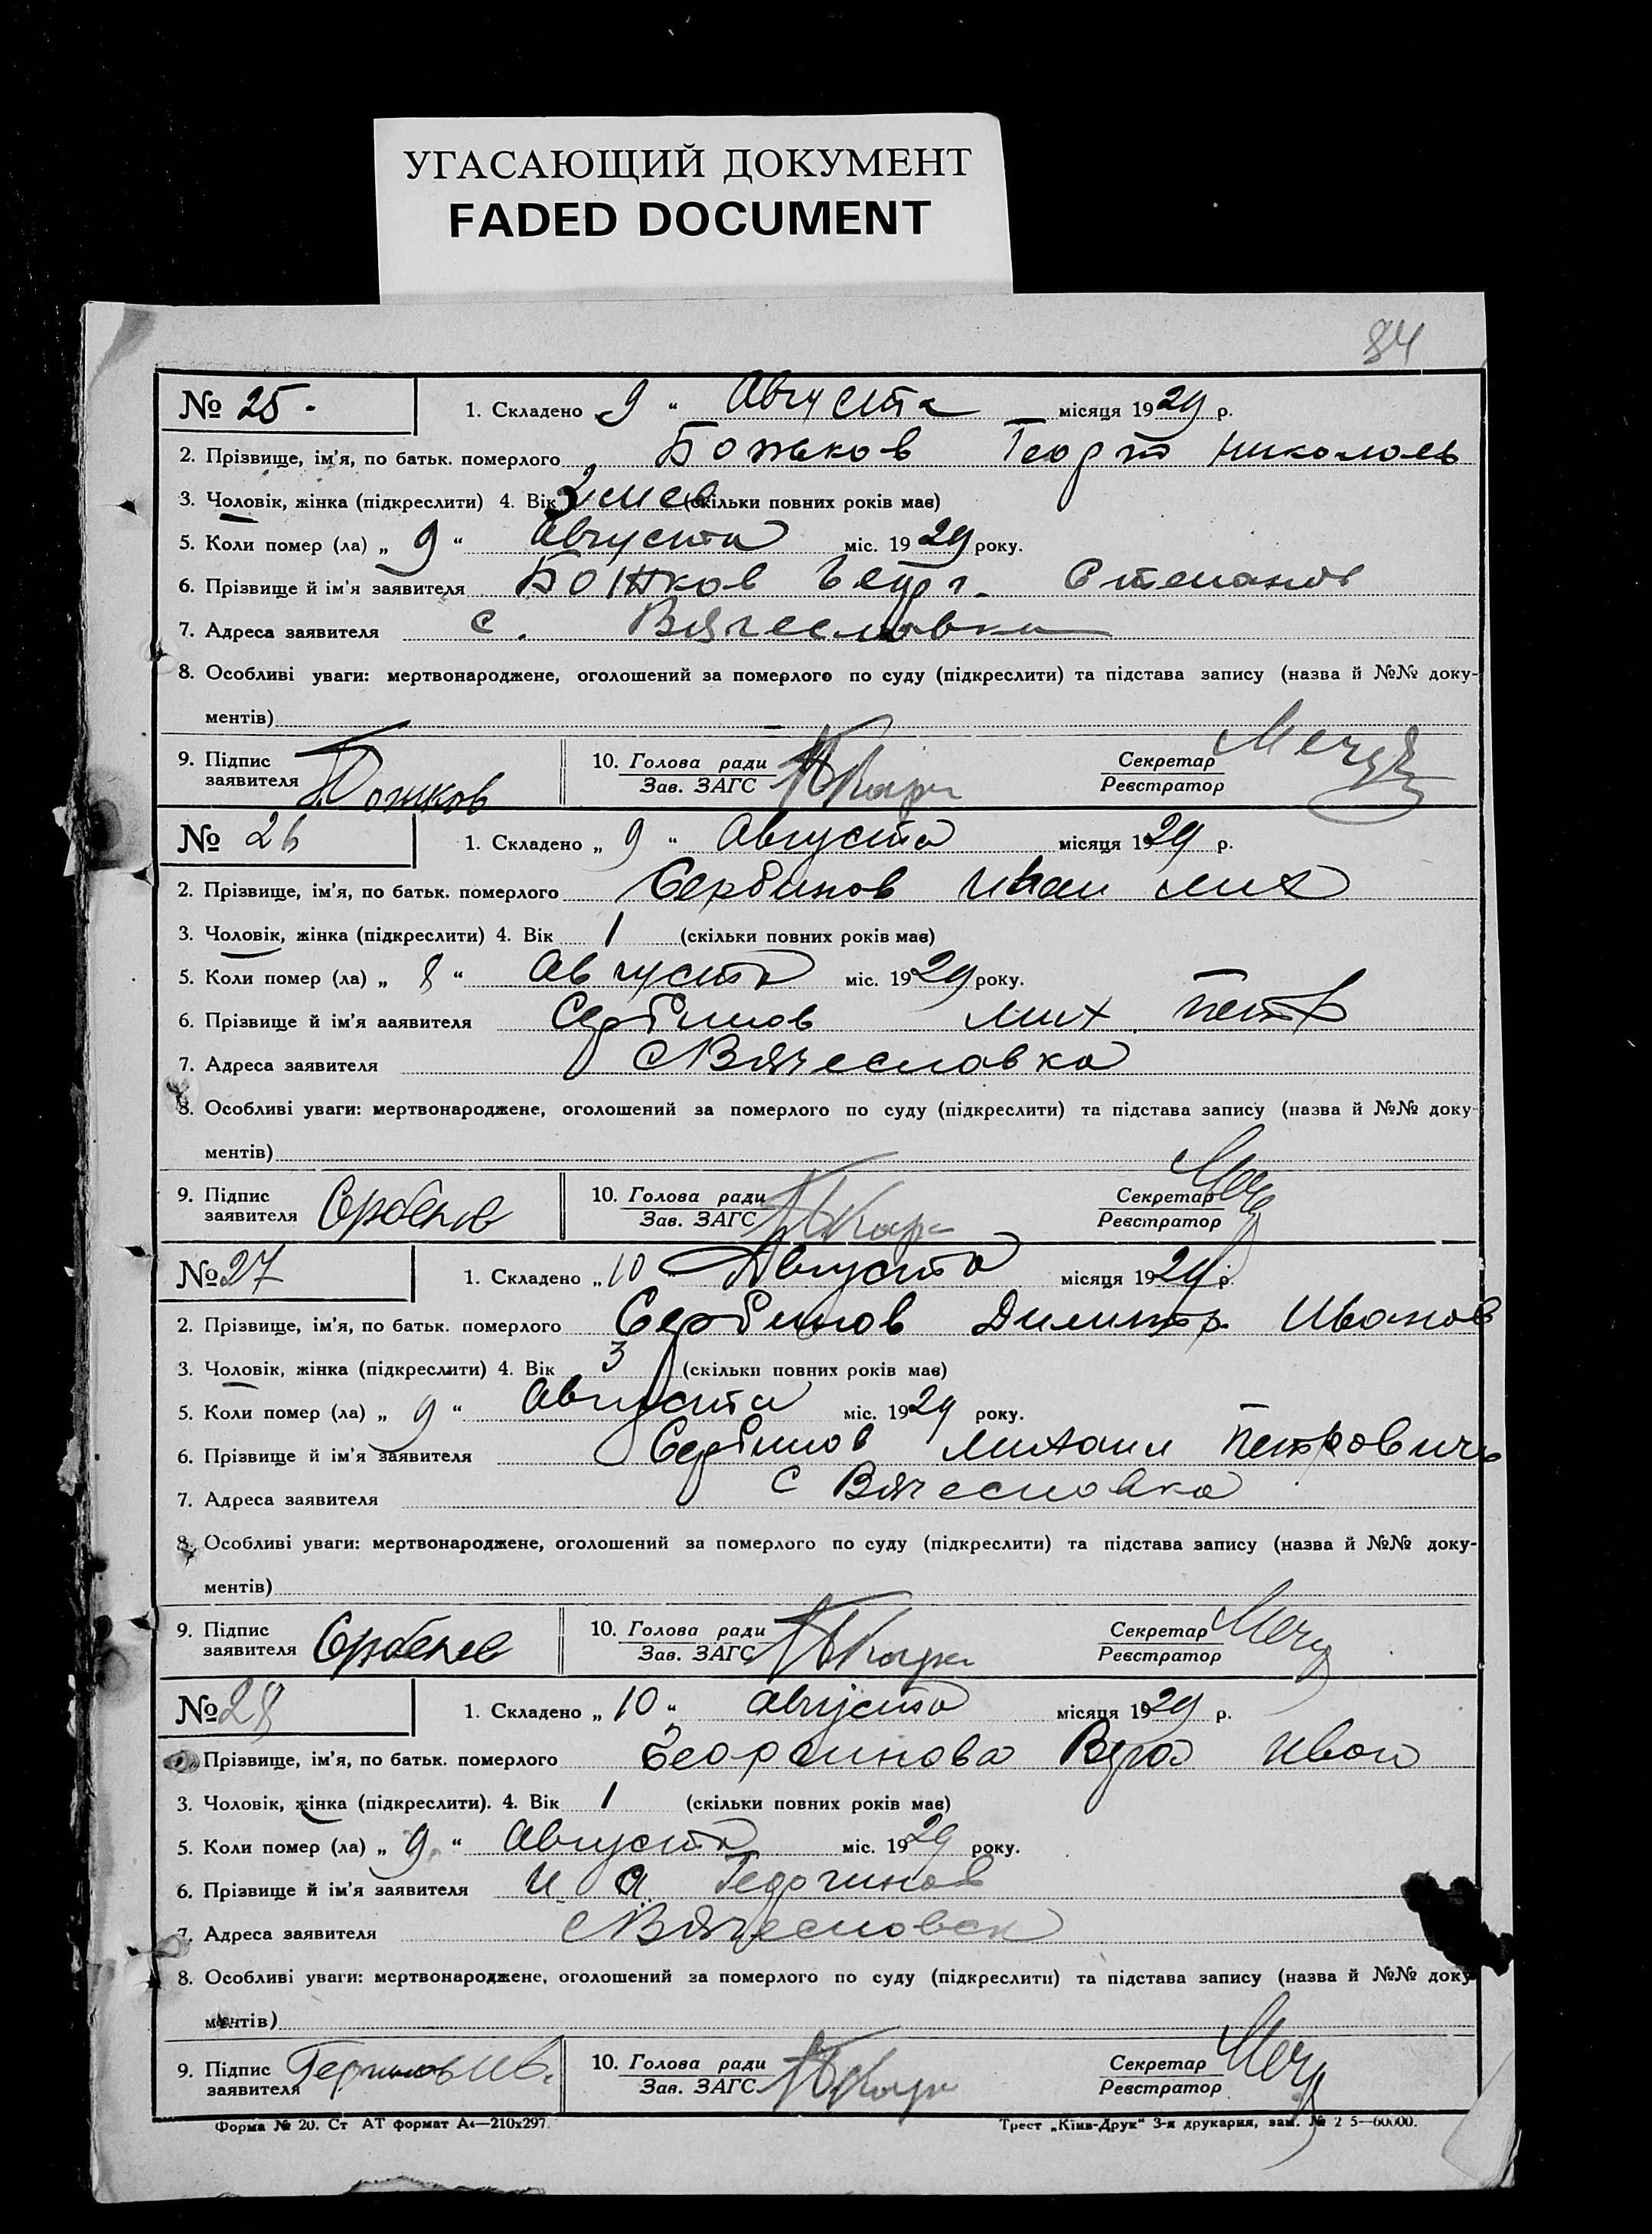 УГАСАЮЩИЙ ДОКУМЕНТ
FADED DOCUMENT
84
№ 25. 1. Складено „ 9 “ Августа місяця 1929 р.
2. Прізвище, ім'я, по батьк. померлого Божков Георги Николаев
3. Чоловік, жінка (підкреслити) 4. Вік 2 мес (скільки повних років має)
5. Коли помер (ла) „ 9 “ Августа міс. 1929 року.
6. Прізвище й ім'я заявителя Божков Степанов
7. Адреса заявителя с. Вячеславка
8. Особливі уваги: мертвонароджене, оголошений за померлого по суду (підкреслити) та підстава запису (назва й №№ доку-
ментів)
9. Підпис заявителя Божков 10. Голова ради Зав. ЗАГС Секретар Реєстратор
№ 26 1. Складено „ 9 “ Августа місяця 1929 р.
2. Прізвище, ім'я, по батьк. померлого Сербинов Иван Мих
3. Чоловік, жінка (підкреслити) 4. Вік 1 (скільки повних років має)
5. Коли помер (ла) „ 8 “ Августа міс. 1929 року.
6. Прізвище й ім'я ааявителя Сербинов Мих. Петр
7. Адреса заявителя с Вячеславка
8. Особливі уваги: мертвонароджене, оголошений за померлого по суду (підкреслити) та підстава запису (назва й №№ доку-
ментів)
9. Підпис заявителя 10. Голова ради Зав. ЗАГС Секретар Реєстратор
№ 27 1. Складено „ 10 “ Августа місяця 1929 р.
2. Прізвище, ім'я, по батьк. померлого Сербинов Димитр. Иванов
3. Чоловік, жінка (підкреслити) 4. Вік 3 (скільки повних років має)
5. Коли помер (ла) „ 9 “ Августа міс. 1929 року.
6. Прізвище й ім'я заявителя Сербинов Михаил Петрович
7. Адреса заявителя с Вячеславка
8. Особливі уваги: мертвонароджене, оголошений за померлого по суду (підкреслити) та підстава запису (назва й №№ доку-
ментів)
9. Підпис заявителя 10. Голова ради Зав. ЗАГС Секретар Реєстратор
№ 28 1. Складено „ 10 “ Августа місяця 1929 р.
Прізвище, ім'я, по батьк. померлого Георгинова Вера Иван
3. Чоловік, жінка (підкреслити). 4. Вік 1 (скільки повних років має)
5. Коли помер (ла) „ 9. “ Августа міс. 1929 року.
6. Прізвище й ім'я заявителя И Георгинов
7. Адреса заявителя с Вячеславск
8. Особливі уваги: мертвонароджене, оголошений за померлого по суду (підкреслити) та підстава запису (назва й №№ доку-
ментів)
9. Підпис заявителя 10. Голова ради Зав. ЗАГС Секретар Реєстратор
Форма № 20. Ст АТ формат А4—210x297. Трест „Київ-Друк“ 3-я друкарня, зам. № 2 5—60000.